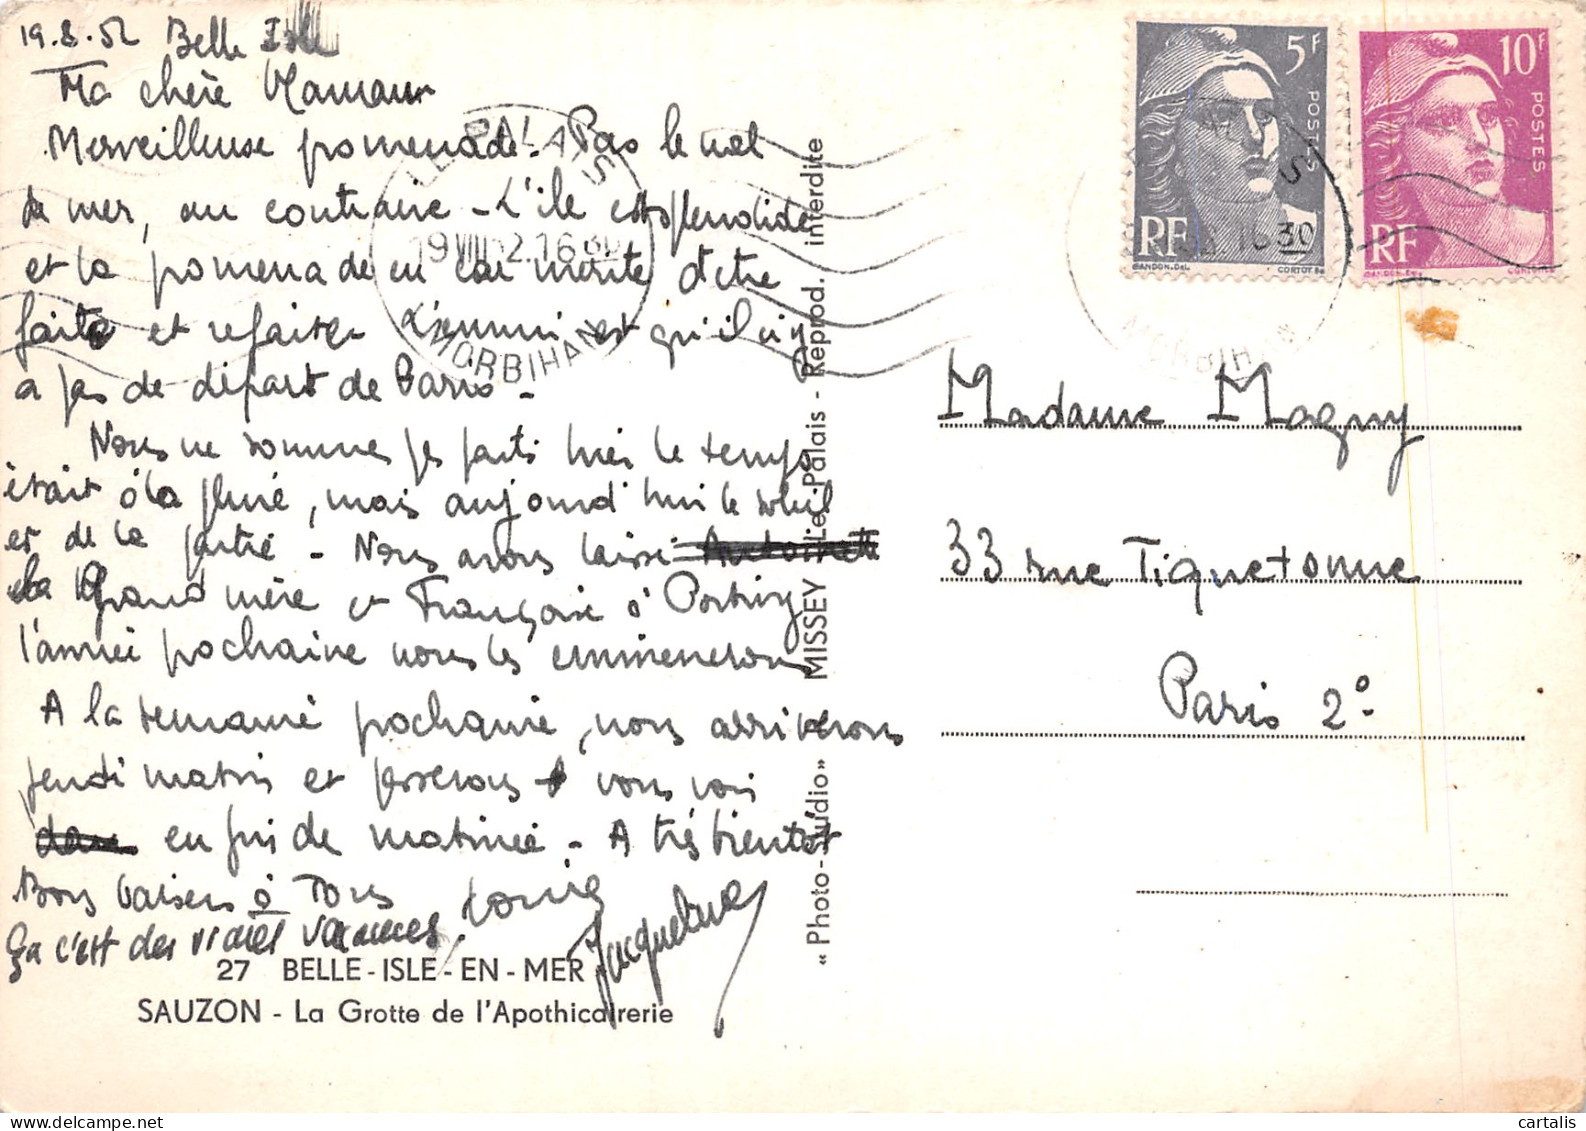 19.8.52 Belle Isle
Ma chère Maman
Merveilleuse promenade. Pas le mal
de mer, au contraire - L'ile est splendide
et la promenade en car mérite d'être
faite et refaite. L'ennui est qu'il n'y
a pas de départ de Paris -
Nous ne sommes pas partis hier le temps
était à la pluie, mais aujourd'hui le soleil
est de la partie - Nous avons laissé
la Grand mère et Françoise à Portivy
l'année prochaine nous les emmenerons
A la semaine prochaine, nous arriverons
jeudi matin et passerons vous voir
en fin de matinée - A très bientôt
Bons baisers à Tous
Ça c'est des vraies vacances.
Jacqueline
27 BELLE-ISLE-EN-MER
SAUZON - La Grotte de l'Apothicairerie
« Photo-Studio » MISSEY - Le Palais - Reprod. interdite
LE PALAIS
19 VIII 52.16 30
MORBIHAN
5F
POSTES
RF
GANDON.Del.
CORTOT.Sc
10F
POSTES
RF
GANDON.Del.
16 30
MORBIHAN
Madame Magny
33 rue Tiquetonne
Paris 2°
cartalis